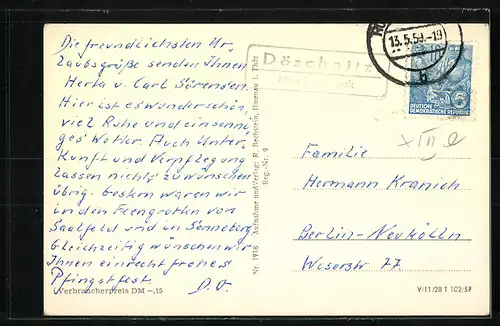 Die freundlichsten Ur-
laubsgrüße senden Ihnen
Herta u. Carl Sörensen.
Hier ist es wunderschön,
viel Ruhe und ein sonni-
ges Wetter. Auch Unter-
kunft und Verpflegung
lassen nichts zu wünschen
übrig. Gestern waren wir
in den Feengrotten von
Saalfeld und in Sonneberg
Gleichzeitig wünschen wir
Ihnen ein recht frohes
Pfingstfest. D. O.
Verbraucherpreis DM -,15
Nr. 1916 Aufnahme und Verlag: R. Bechstein, Ilmenau i. Thür
Reg.-Nr. 9
Döschnitz
13.5.59.-19
b
DEUTSCHE
DEMOKRATISCHE REPUBLIK
5
XIII e
Familie
Hermann Kranich
Berlin-Neukölln
Weserstr 77
V/11/28 T 102/57